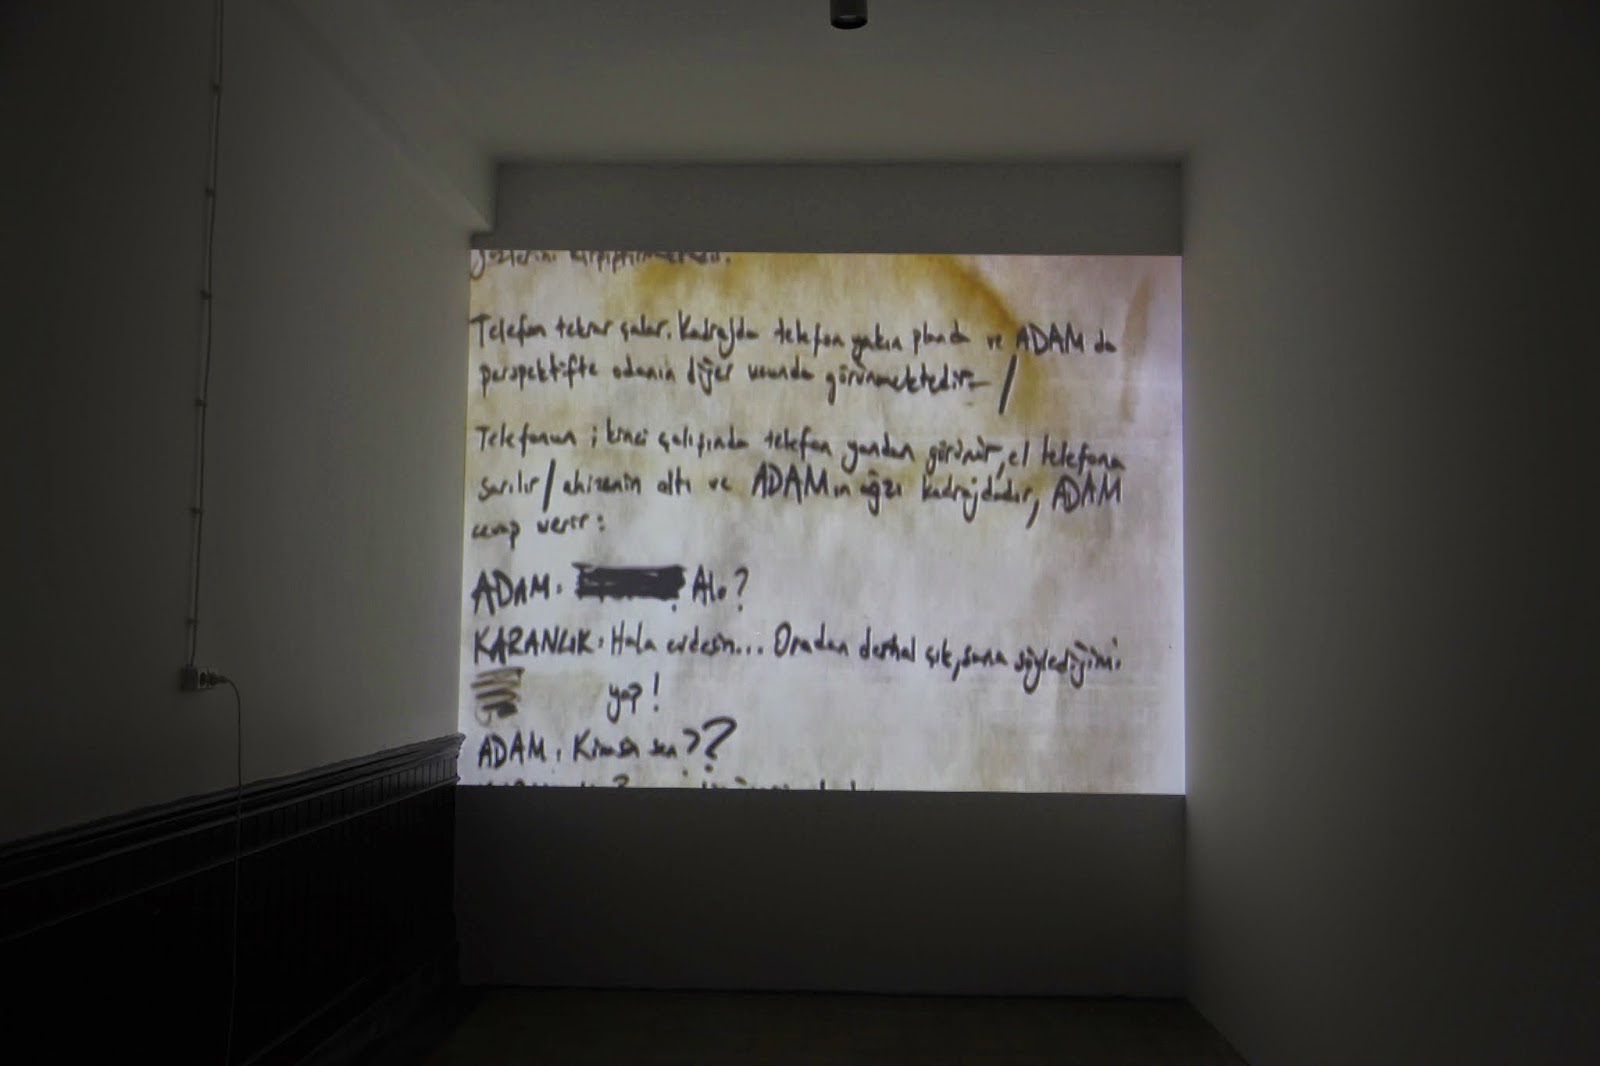 gözlerini kırpıştırmaktadır.
Telefon tekrar çalar. Kadrajda telefon yakın planda ve ADAM da
perspektifte odanın diğer ucunda görünmektedir /
Telefonun ikinci çalışında telefon yandan görünür, el telefona
sarılır / ahizenin altı ve ADAMın ağzı kadrajdadır, ADAM
cevap verir:
ADAM: Alo?
KARANLIK: Hala evdesin... Oradan derhal çık, sana söylediğimi
yap!
ADAM: Kimsin sen??